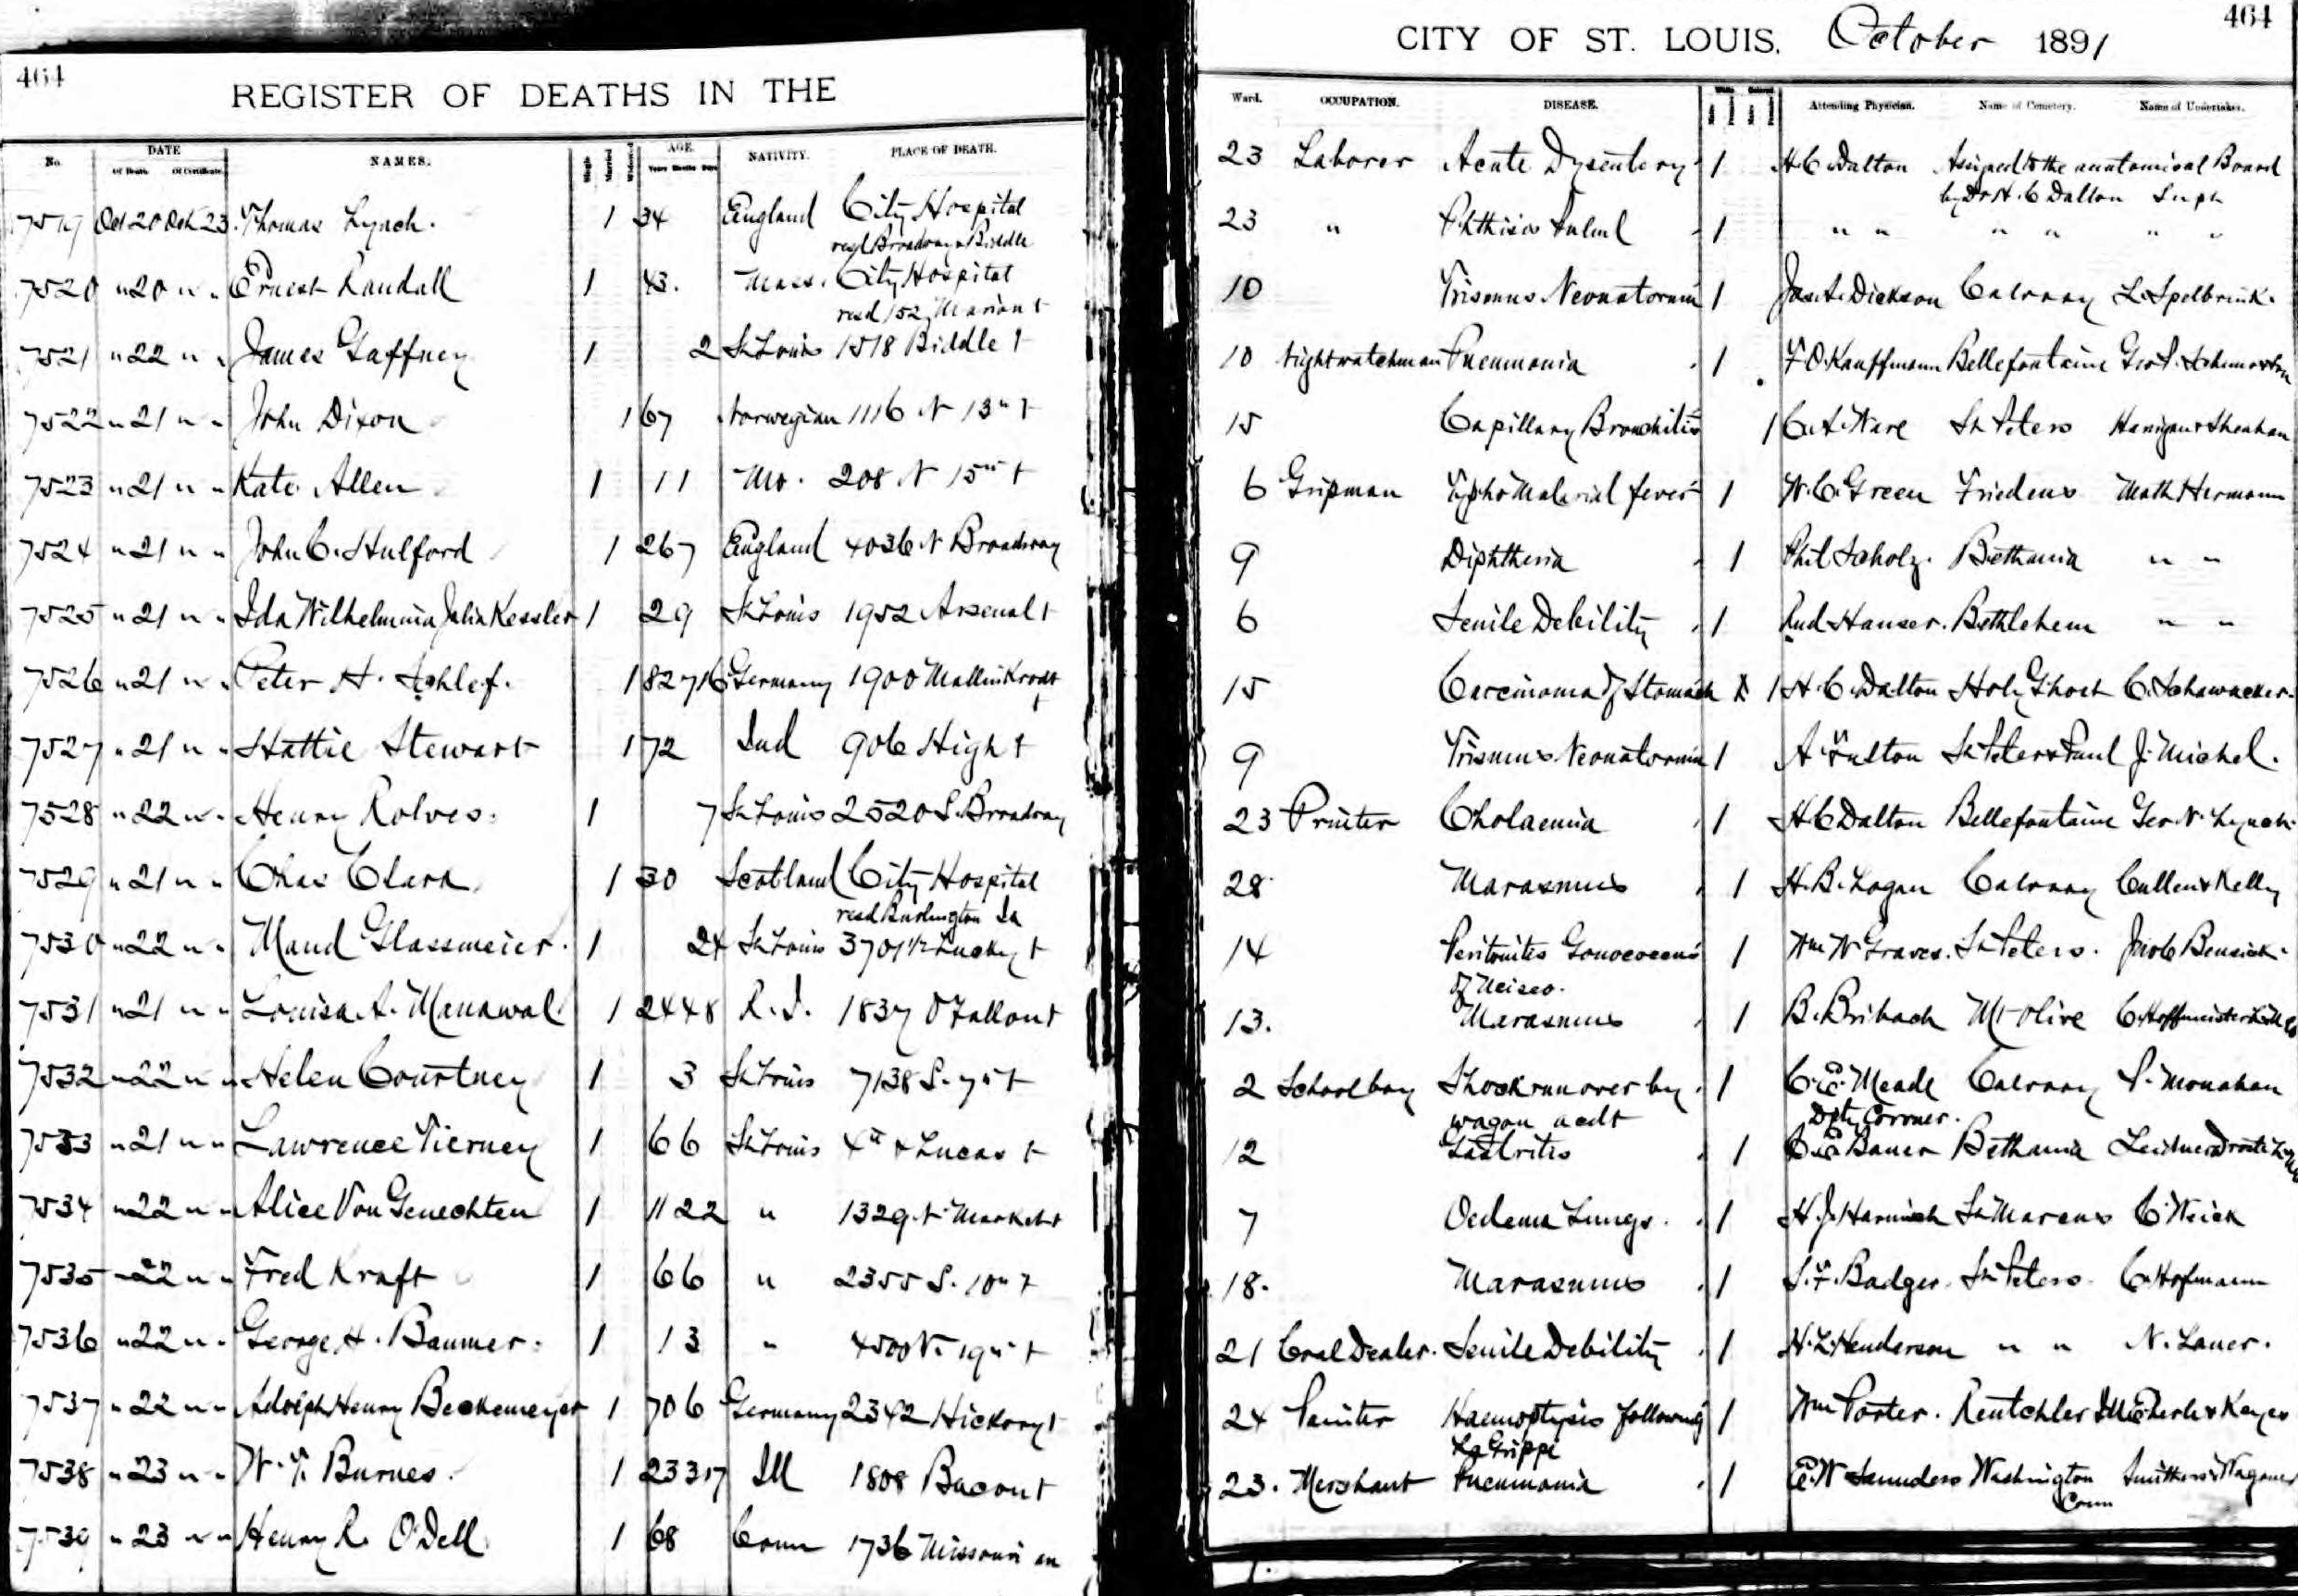 464
REGISTER OF DEATHS IN THE
No. DATE NAMES. Single Married Widowed AGE NATIVITY. PLACE OF DEATH.
Of Death. Of Certificate. Years Months Days
7519 Oct 20 Oct 23 Thomas Lynch. 1 34 England City Hospital
resd Broadway & Biddle
7520 " 20 " " Ernest Randall 1 43. Mass. City Hospital
resd 152 Marion t
7521 " 22 " " James Gaffney 1 2 St Louis 1518 Biddle t
7522 " 21 " " John Dixon 1 67 Norwegian 1116 N 13" t
7523 " 21 " " Kate Allen 1 11 Mo. 208 N 15" t
7524 " 21 " " John C. Hulford 1 26 7 England 4036 N Broadway
7525 " 21 " " Ida Wilhelmina Julia Kessler 1 2 9 St Louis 1952 Arsenal t
7526 " 21 " " Peter H. Schlef. 1 82 7 16 Germany 1900 Mallinkrodt
t
7527 " 21 " " Hattie Stewart 1 72 Ind 906 High t
7528 " 22 " " Henry Rolves. 1 7 St Louis 2520 S. Broadway
7529 " 21 " " Chas Clark 1 30 Scotland City Hospital
resd Burlington Ia
7530 " 22 " " Maud Glassmeier. 1 24 St Louis 3701 1/2 Lucky t
7531 " 21 " " Louisa A. Manawal 1 24 4 8 R. I. 1837 O Fallon t
7532 " 22 " " Helen Courtney 1 3 St Louis 7138 S. 7" t
7533 " 21 " " Lawrence Tierney 1 6 6 St Louis 4th & Lucas t
7534 " 22 " " Alice Von Genechten 1 11 22 " 1329 N. Market t
7535 " 22 " " Fred Kraft 1 6 6 " 2355 S. 10" t
7536 " 22 " " George H. Baumer. 1 1 3 " 4500 N. 19" t
7537 " 22 " " Adolph Henry Beckemeyer 1 70 6 Germany 2342 Hickory t
7538 " 23 " " W. T. Burnes. 1 23 3 17 Ill 1808 Bacon t
7539 " 23 " " Henry R. O'Dell 1 68 Conn 1736 Missouri av
464
CITY OF ST. LOUIS, October 1891
Ward. OCCUPATION. DISEASE. White Colored Attending Physician. Name of Cemetery. Name of Undertaker.
23 Laborer Acute Dysentery 1 H. C. Dalton Assigned to the anatomical Board
by Dr H. C Dalton Supt
23 " Phthisis Pulml 1 " " " " " "
10 Trismus Neonatorum 1 Jas. A. Dickson Calvary L. Spelbrink.
10 Nightwatchman Pneumonia 1 F O. Kauffmann Bellefontaine Geo S.
15 Capillary Bronchitis 1 C. A. Ware St Peters Hanigan & Sheahan
6 Gripman Typho Malarial fever 1 W. C. Green Friedens Math Hermann
9 Diphtheria 1 Phil Scholz. Bethania " "
6 Senile Debility 1 Rud Hauser. Bethlehem " "
15 Carcinoma of Stomach 1 H. C. Dalton Holy Ghost C. Schawacker.
9 Trismus Neonatorum 1 A Fulton St Peter & Paul J. Michel.
23 Printer Cholaemia 1 H C Dalton Bellefontaine Geo. N. Lynch.
28 Marasmus 1 H. B. Logan Calvary Cullen & Kelly
14 Peritonitis Gonococcus 1 Wm W Graves. St Peters. Jacob Bensick.
of Neiseo.
13. Marasmus 1 B. Bribach Mt Olive C. Hoffmeister
2 School boy Shock run over by 1 C. E. Meade Calvary P. Monahan
wagon acdt Dpty Corroner.
12 Gastritis 1 Bauer Bethania Leidner
7 Oedema Lungs. 1 H. J. Harnisch St Marcus C. Weick
18. Marasmus 1 S. F. Badger. St Peters. C. Hofmann
21 Coal Dealer. Senile Debility 1 H. L. Henderson " " N. Lauer.
24 Painter Haemoptysis following 1 Wm Porter. Rentchler Ill Eberle & Keyes
La Grippe
23. Merchant Pneumonia 1 E. W Saunders Washington Smithers & Wagoner
Conn